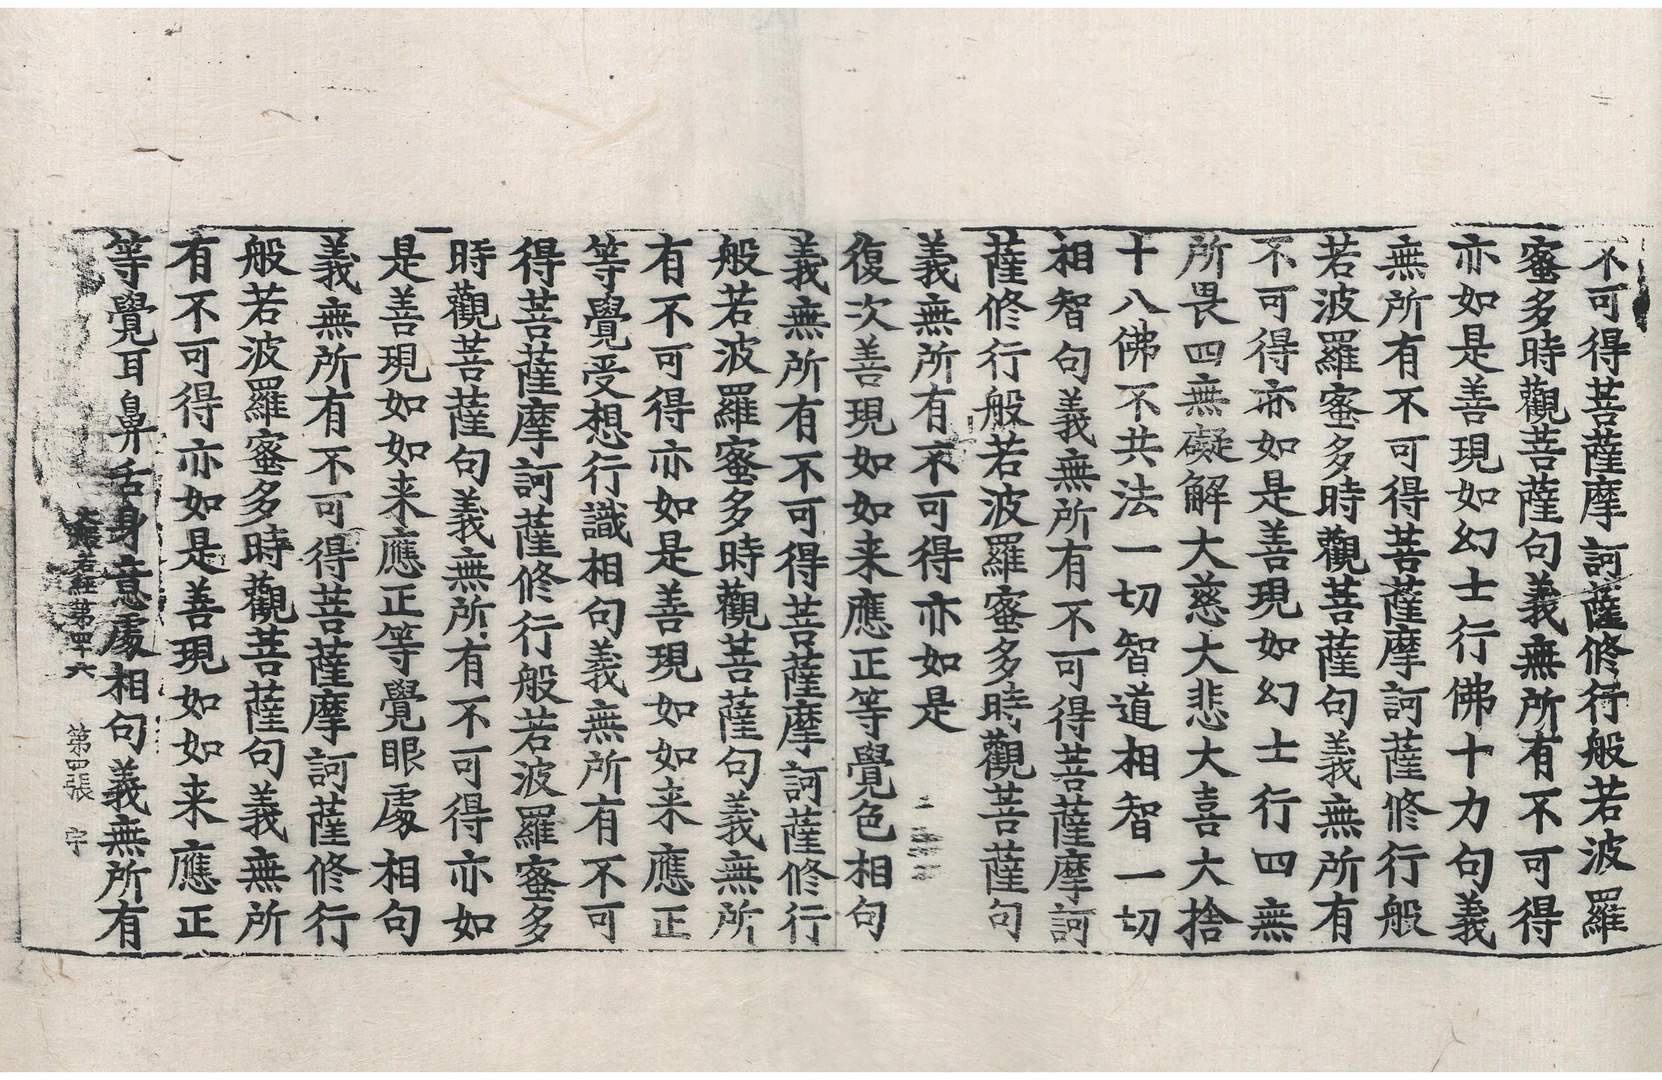 不可得菩薩摩訶薩修行般若波羅
蜜多時觀菩薩句義無所有不可得
亦如是善現如幻士行佛十力句義
無所有不可得菩薩摩訶薩修行般
若波羅蜜多時觀菩薩句義無所有
不可得亦如是善現如幻士行四無
所畏四無礙解大慈大悲大喜大捨
十八佛不共法一切智道相智一切
相智句義無所有不可得菩薩摩訶
薩修行般若波羅蜜多時觀菩薩句
義無所有不可得亦如是
復次善現如如来應正等覺色相句
義無所有不可得菩薩摩訶薩修行
般若波羅蜜多時觀菩薩句義無所
有不可得亦如是善現如如来應正
等覺受想行識相句義無所有不可
得菩薩摩訶薩修行般若波羅蜜多
時觀菩薩句義無所有不可得亦如
是善現如如来應正等覺眼處相句
義無所有不可得菩薩摩訶薩修行
般若波羅蜜多時觀菩薩句義無所
有不可得亦如是善現如如来應正
等覺耳鼻舌身意處相句義無所有
般若經第四十六 第四張 宇